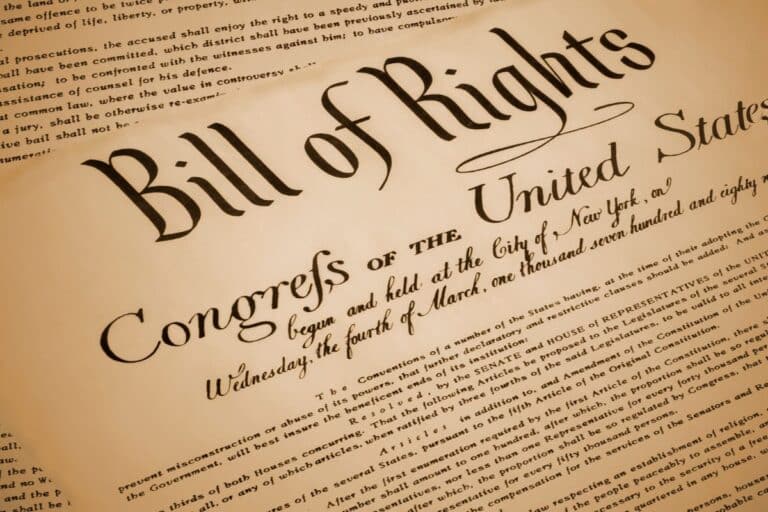 the land or
same offence to be twice
deprived of life, liberty, or property, wi
al prosecutions, the accused shall enjoy the right to a speedy and pub
all have been committed, which district shall have been previously ascertained by la
sation; to be confronted with the witnesses against him; to have compulsor
assistance of counsel for his defence.
t common law, where the value in controversy shall
a jury, shall be otherwise re-exam
ive bail shall not be
numerati
Bill of Rights
Congreſs OF THE United States
begun and held at the City of New York, on
Wednesday, the fourth of March, one thousand seven hundred and eighty n
The Conventions of a number of the States having, at the time of their adopting the C
prevent misconstruction or abuse of its powers, that further declaratory and restrictive clauses should be added: And as
the Government, will best insure the beneficent ends of its institution:
Resolved, by the SENATE and HOUSE of REPRESENTATIVES of the UNIT
thirds of both Houses concurring. That the following Articles be proposed to the Legislatures of the several S
all, or any of which articles, when ratified by three fourths of the said Legislatures, to be valid to all inte
Articles in addition to, and Amendment of the Constitution of the Unit
res of the several States, pursuant to the fifth Article of the Original Constitution.
After the first enumeration required by the first Article of the Constitution, there s
number shall amount to one hundred, after which, the proportion shall be so regu
entatives, nor less than one Representative for every forty thousand per
after which, the proportion shall be so regulated by Congress, that t
resentative for every fifty thousand persons.
the compensation for the services of the Senators and Re
law respecting an establishment of religion,
of the people peaceably to assemble, an
necessary to the security of a free
quartered in any house, w
persons, house
probable ca
law.
of the p
and no W
and the
the p